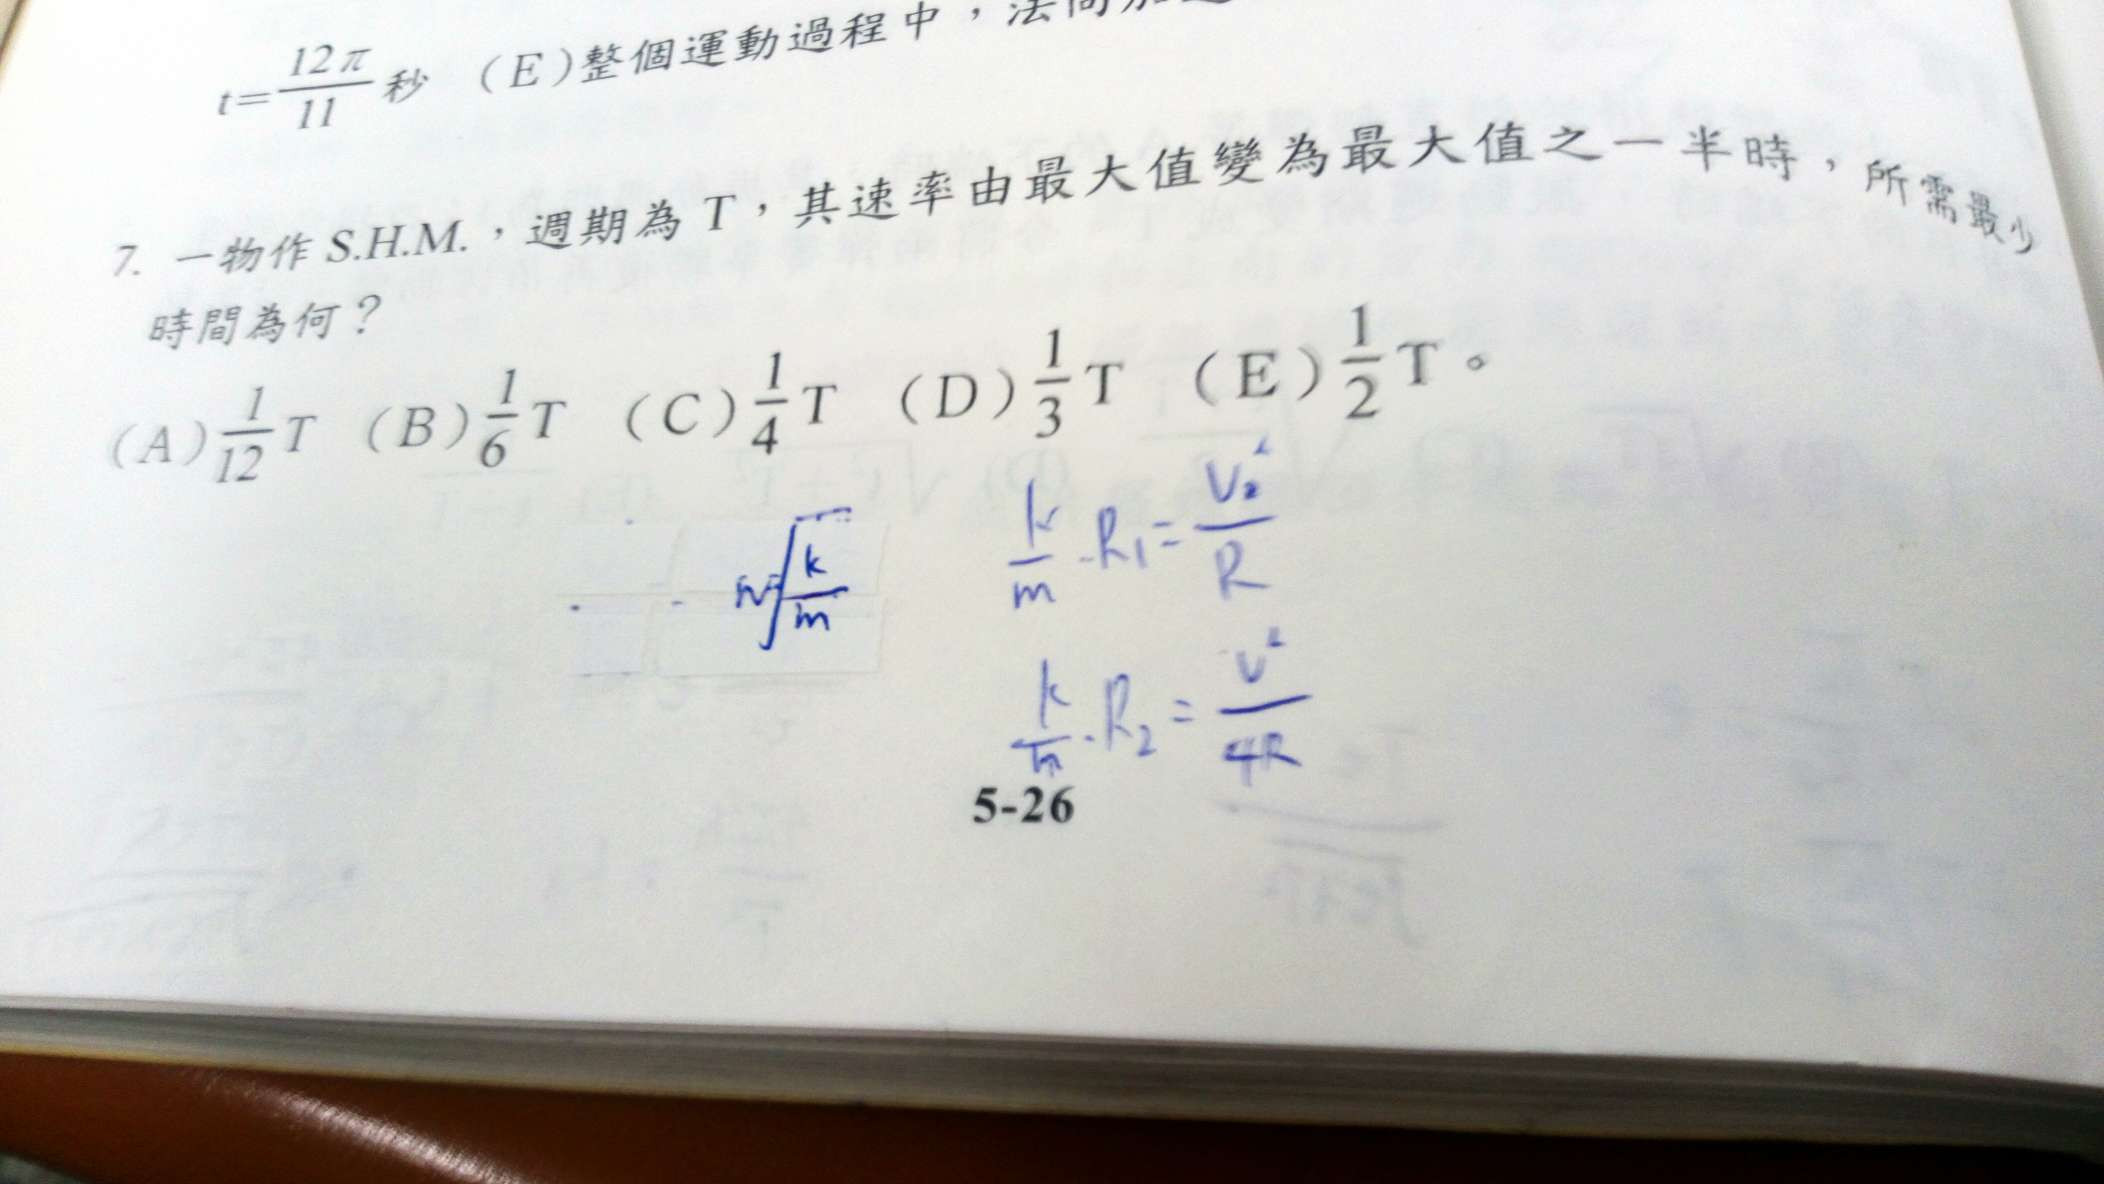 t=12π/11 秒 (E)整個運動過程中，法向加
7. 一物作 S.H.M.，週期為 T，其速率由最大值變為最大值之一半時，所需最少
時間為何？
(A) 1/12 T (B) 1/6 T (C) 1/4 T (D) 1/3 T (E) 1/2 T。
k/m · R₁ = V₂²/R
√(k/m)
k/m · R₂ = v²/4R
5-26